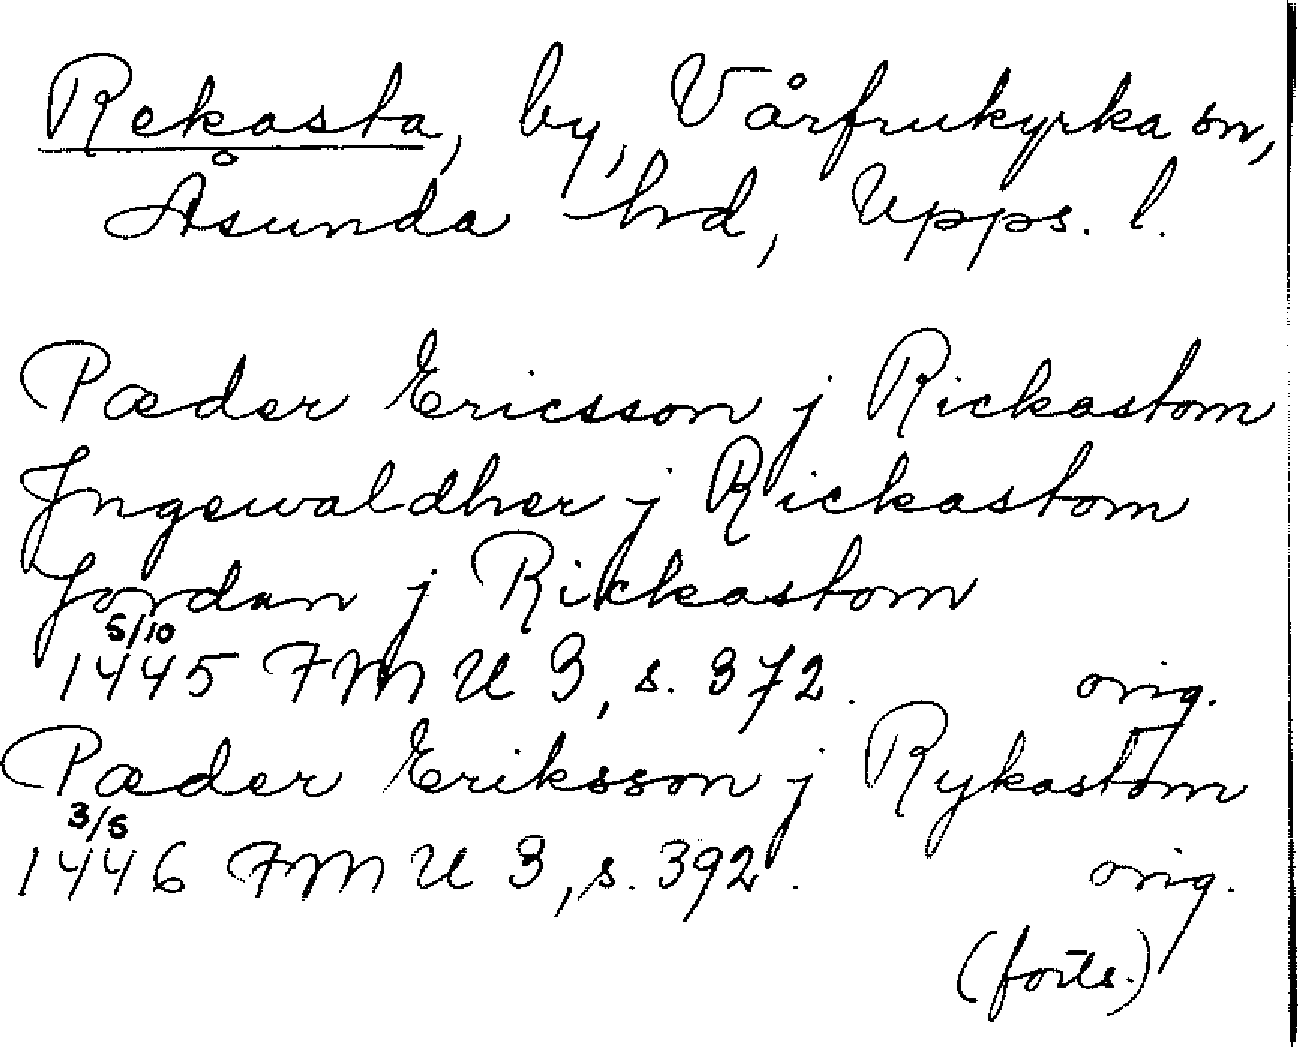 Rekasta, by, Vårfrukyrka sn,
Åsunda hd, Upps. l.
Pæder Ericsson j Rickastom
Jngewaldher j Rickastom
Jordan j Rickastom
5/10
1445 FMU 3, s. 372. orig.
Pæder Eriksson j Rykastom
3/5
1446 FMU 3, s. 392. orig.
(forts.)